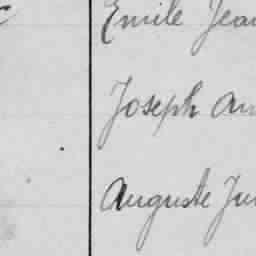 Emile Jean
Joseph
Auguste